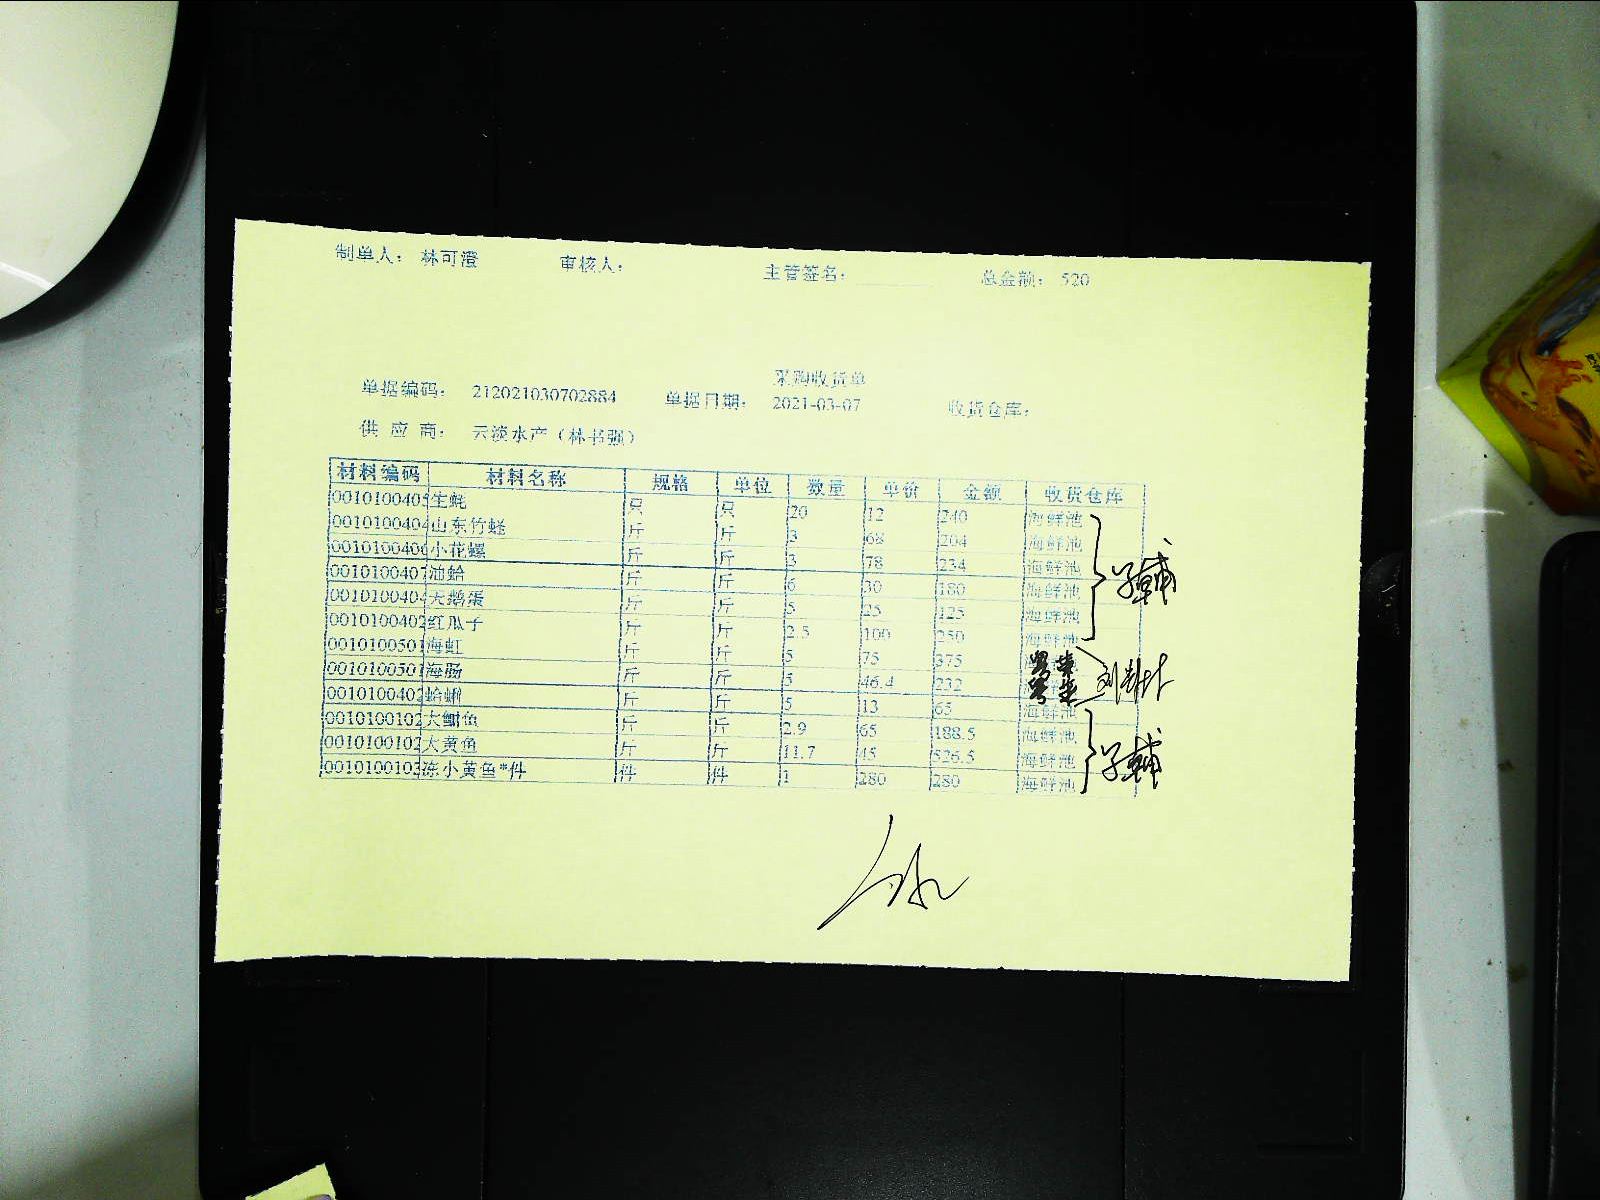 制单人： 林可澄 审核人： 主管签名： 总金额： 520
采购收货单
单据编码： 212021030702884 单据日期： 2021-03-07 收货仓库：
供 应 商： 云淡水产（林书强）
材料编码 材料名称 规格 单位 数量 单价 金额 收货仓库
0010100405 生蚝 只 只 20 12 240 海鲜池
0010100404 山东竹蛏 斤 斤 3 68 204 海鲜池
0010100406 小花螺 斤 斤 3 78 234 海鲜池
0010100407 油蛤 斤 斤 6 30 180 海鲜池
0010100404 天鹅蛋 斤 斤 5 25 125 海鲜池
0010100402 红瓜子 斤 斤 2.5 100 250 海鲜池
0010100501 海虹 斤 斤 5 75 375
0010100501 海肠 斤 斤 5 46.4 232
0010100402 蛤蜊 斤 斤 5 13 65 海鲜池
0010100102 大鲷鱼 斤 斤 2.9 65 188.5 海鲜池
0010100102 大黄鱼 斤 斤 11.7 45 526.5 海鲜池
0010100103 冻小黄鱼*件 件 件 1 280 280 海鲜池